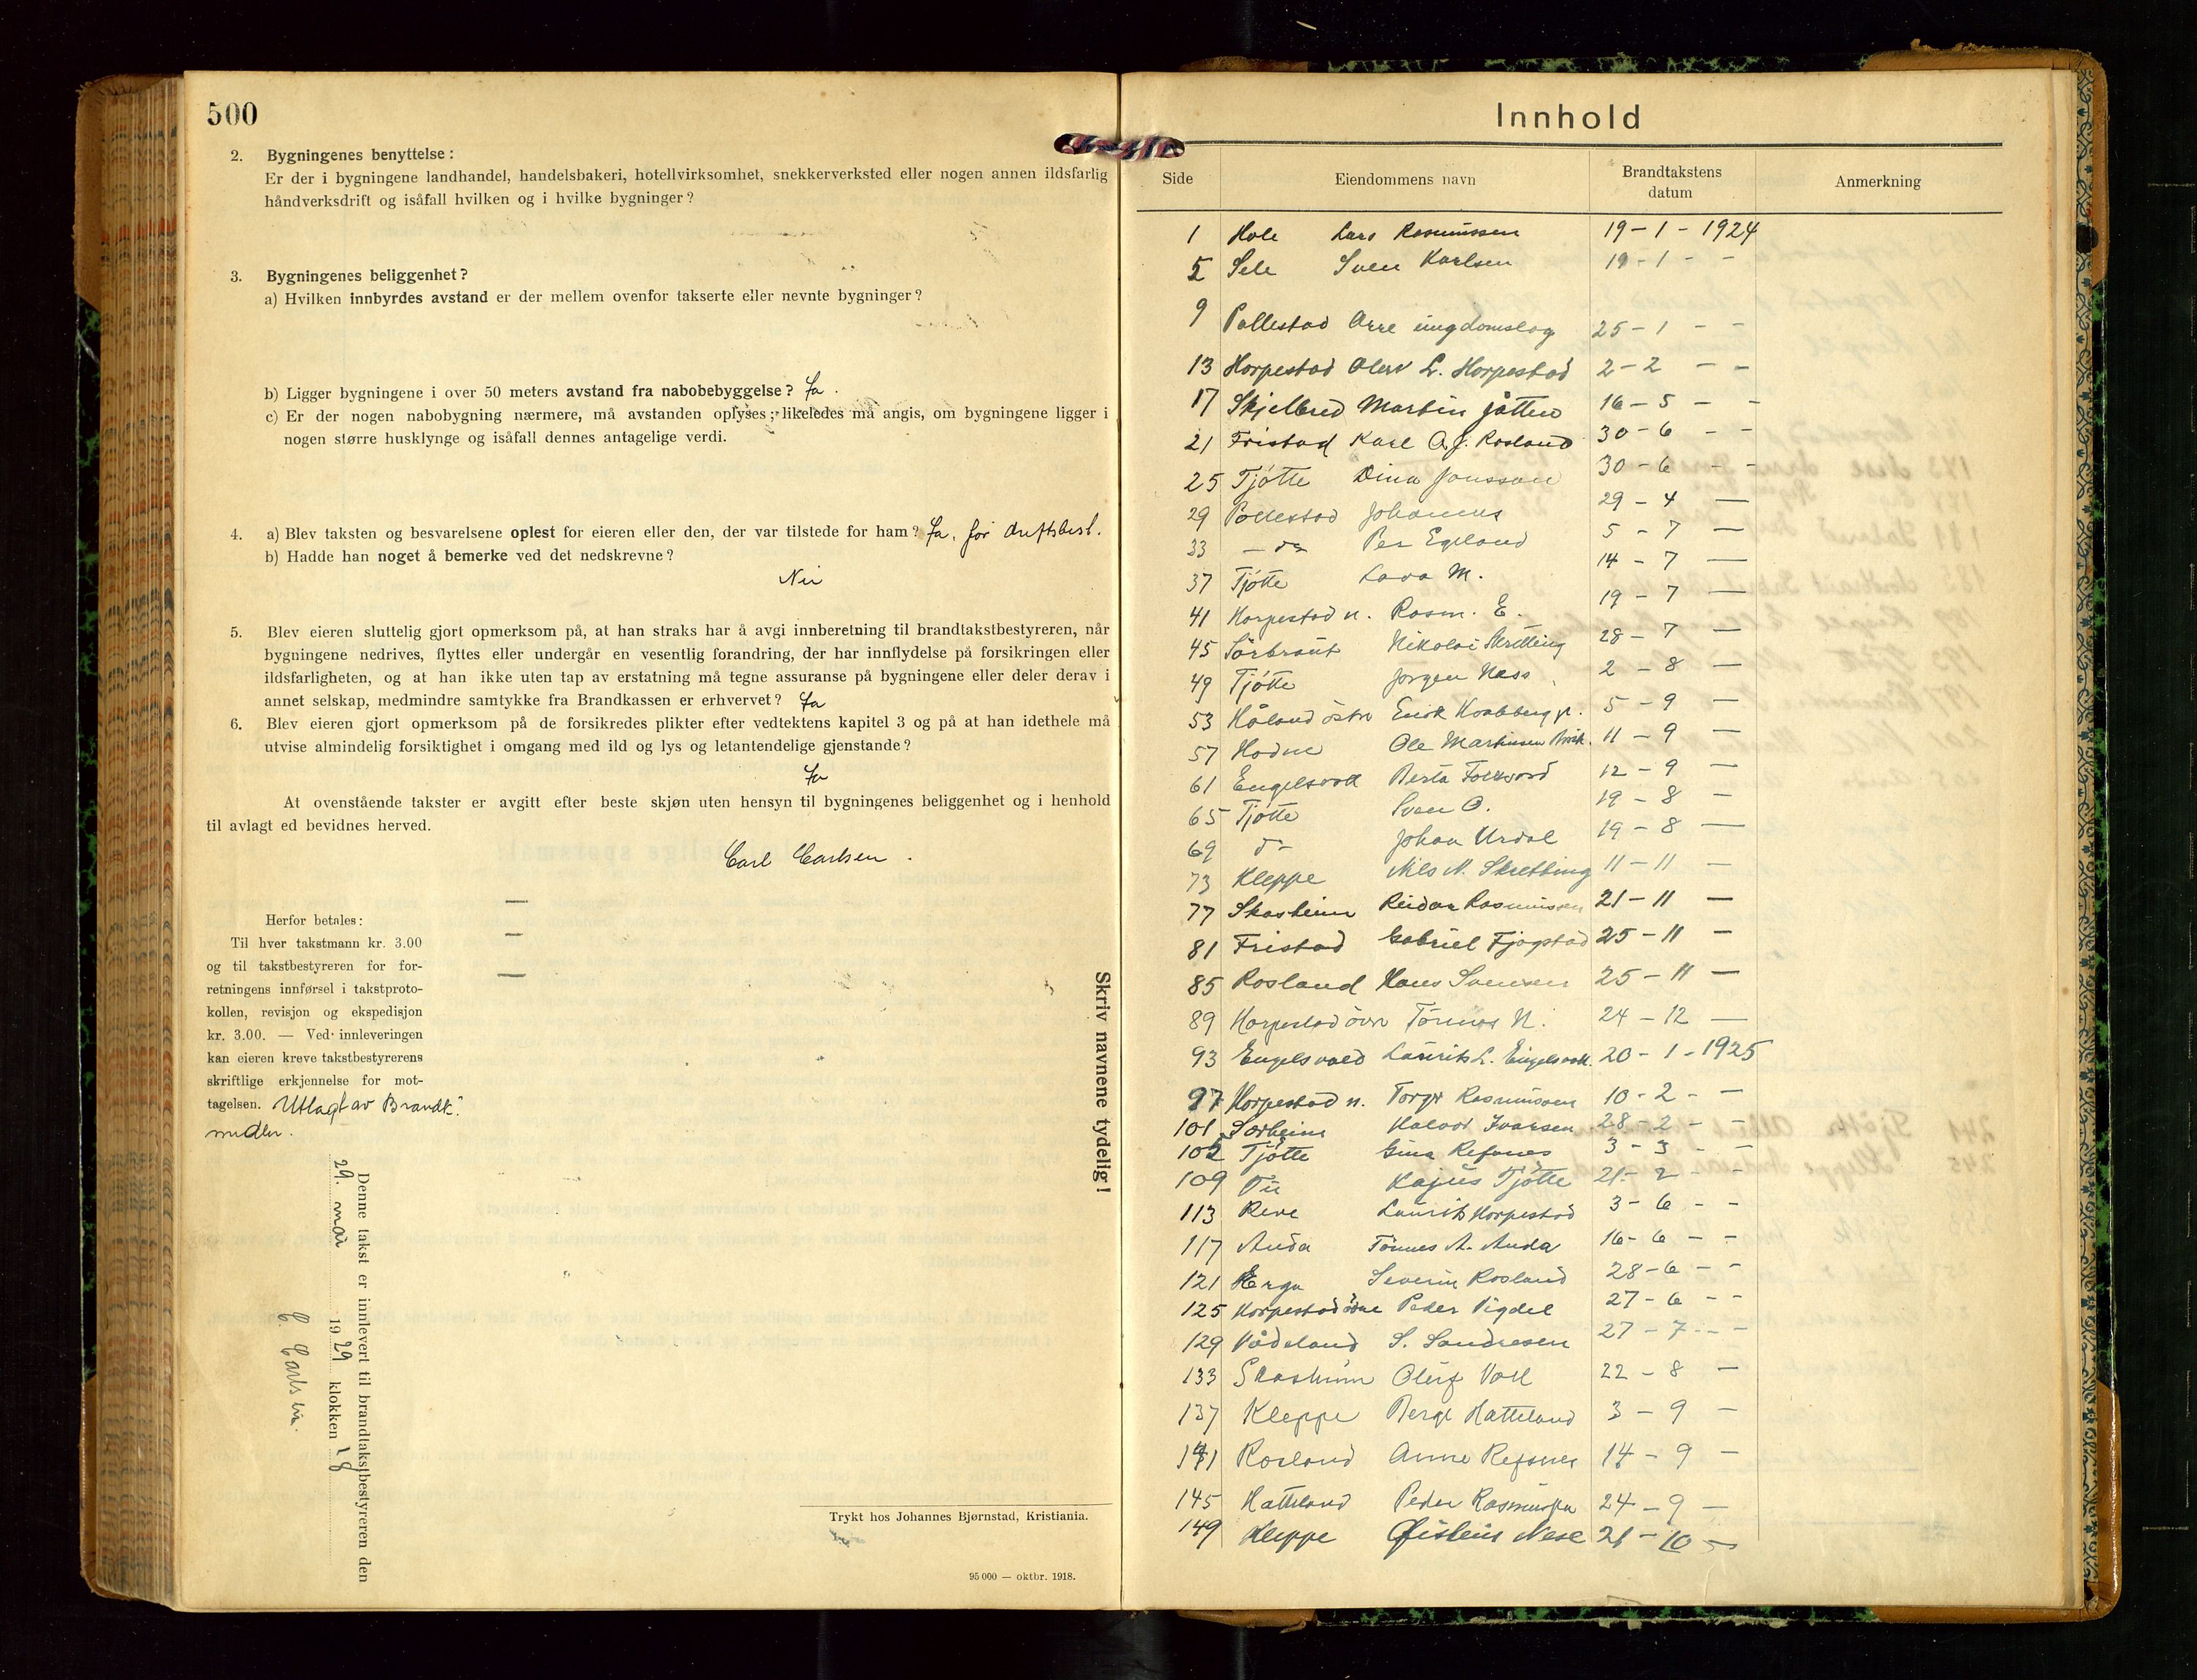 500
2. Bygningenes benyttelse:
Er der i bygningene landhandel, handelsbakeri, hotellvirksomhet, snekkerverksted eller nogen annen ildsfarlig
håndverksdrift og isåfall hvilken og i hvilke bygninger?
3. Bygningenes beliggenhet?
a) Hvilken innbyrdes avstand er der mellem ovenfor takserte eller nevnte bygninger?
b) Ligger bygningene i over 50 meters avstand fra nabobebyggelse? Ja.
c) Er der nogen nabobygning nærmere, må avstanden oplyses; likeledes må angis, om bygningene ligger i
nogen større husklynge og isåfall dennes antagelige verdi.
4. a) Blev taksten og besvarelsene oplest for eieren eller den, der var tilstede for ham? Ja, for driftsbest.
b) Hadde han noget å bemerke ved det nedskrevne?
Nei
5. Blev eieren sluttelig gjort opmerksom på, at han straks har å avgi innberetning til brandtakstbestyreren, når
bygningene nedrives, flyttes eller undergår en vesentlig forandring, der har innflydelse på forsikringen eller
ildsfarligheten, og at han ikke uten tap av erstatning må tegne assuranse på bygningene eller deler derav i
annet selskap, medmindre samtykke fra Brandkassen er erhvervet? Ja
6. Blev eieren gjort opmerksom på de forsikredes plikter efter vedtektens kapitel 3 og på at han idethele må
utvise almindelig forsiktighet i omgang med ild og lys og letantendelige gjenstande?
Ja
At ovenstående takster er avgitt efter beste skjøn uten hensyn til bygningenes beliggenhet og i henhold
til avlagt ed bevidnes herved.
Carl Carlsen.
Herfor betales:
Til hver takstmann kr. 3.00
og til takstbestyreren for for-
retningens innførsel i takstproto-
kollen, revisjon og ekspedisjon
kr. 3.00. — Ved innleveringen
kan eieren kreve takstbestyrerens
skriftlige erkjennelse for mot-
tagelsen. Utlagt av Brandk.
midler.
Denne takst er innlevert til brandtakstbestyreren den
29. mai 1929 klokken 18
C. Carlsen.
Skriv navnene tydelig!
Trykt hos Johannes Bjørnstad, Kristiania.
95 000 — oktbr. 1918.
Innhold
Side Eiendommens navn Brandtakstens datum Anmerkning
1 Hole Lars Rasmussen 19-1-1924
5 Sele Sven Karlsen 19-1 - -
9 Pollestad Orre ungdomslag 25-1 - -
13 Horpestad Olav L. Horpestad 2-2 - -
17 Skjelbred Martin Jåtten 16-5 - -
21 Fristad Karl A. J. Rosland 30-6 - -
25 Tjøtte Dina Jonsson 30-6 - -
29 Pollestad Johannes 29-4 —
33 — do Per Egeland 5-7 —
37 Tjøtte Lava M. 14-7 —
41 Horpestad n. Rasm. E. 19-7 —
45 Sörbraut Nikolai Skretting 28-7 —
49 Tjøtte Jørgen Næss 2-8 —
53 Håland östre Enok 5-9 —
57 Hodne Ole Martinsen 11-9 —
61 Engelsvoll Berta Folkvord 12-9 —
65 Tjøtte Sven O. 19-8 —
69 do Johan Urdal 19-8 —
73 Kleppe Nils N. Skretting 11-11 —
77 Skasheim Reidar Rasmussen 21-11 —
81 Fristad Gabriel Fjogstad 25-11 —
85 Rosland Hans Svensen 25-11 —
89 Horpestad övre Tönnes N. 24-12 —
93 Engelsvold Laurits L. Engelsvoll. 20-1-1925
97 Horpestad n. Torger Rasmussen 10-2 - -
101 Sørheim Halvor Ivarsen 28-2 - -
105 Tjøtte Gina Refsnes 3-3 - -
109 Tu Kajus Tjøtte 21-2 - -
113 Reve Laurits Horpestad 3-6 - -
117 Anda Tönnes A. Anda 16-6 - -
121 Erga Severin Rosland 28-6 - -
125 Horpestad övre Peder Vigdel 27-6 - -
129 Vådeland S. Sandresen 27-7 - -
133 Skasheim Oluf Voll 22-8 —
137 Kleppe Berge Hatteland 3-9 —
141 Rosland Anne Refsnes 14-9 —
145 Hatteland Peder Rasmussen 24-9 —
149 Kleppe Øistein Nese 21-10 —